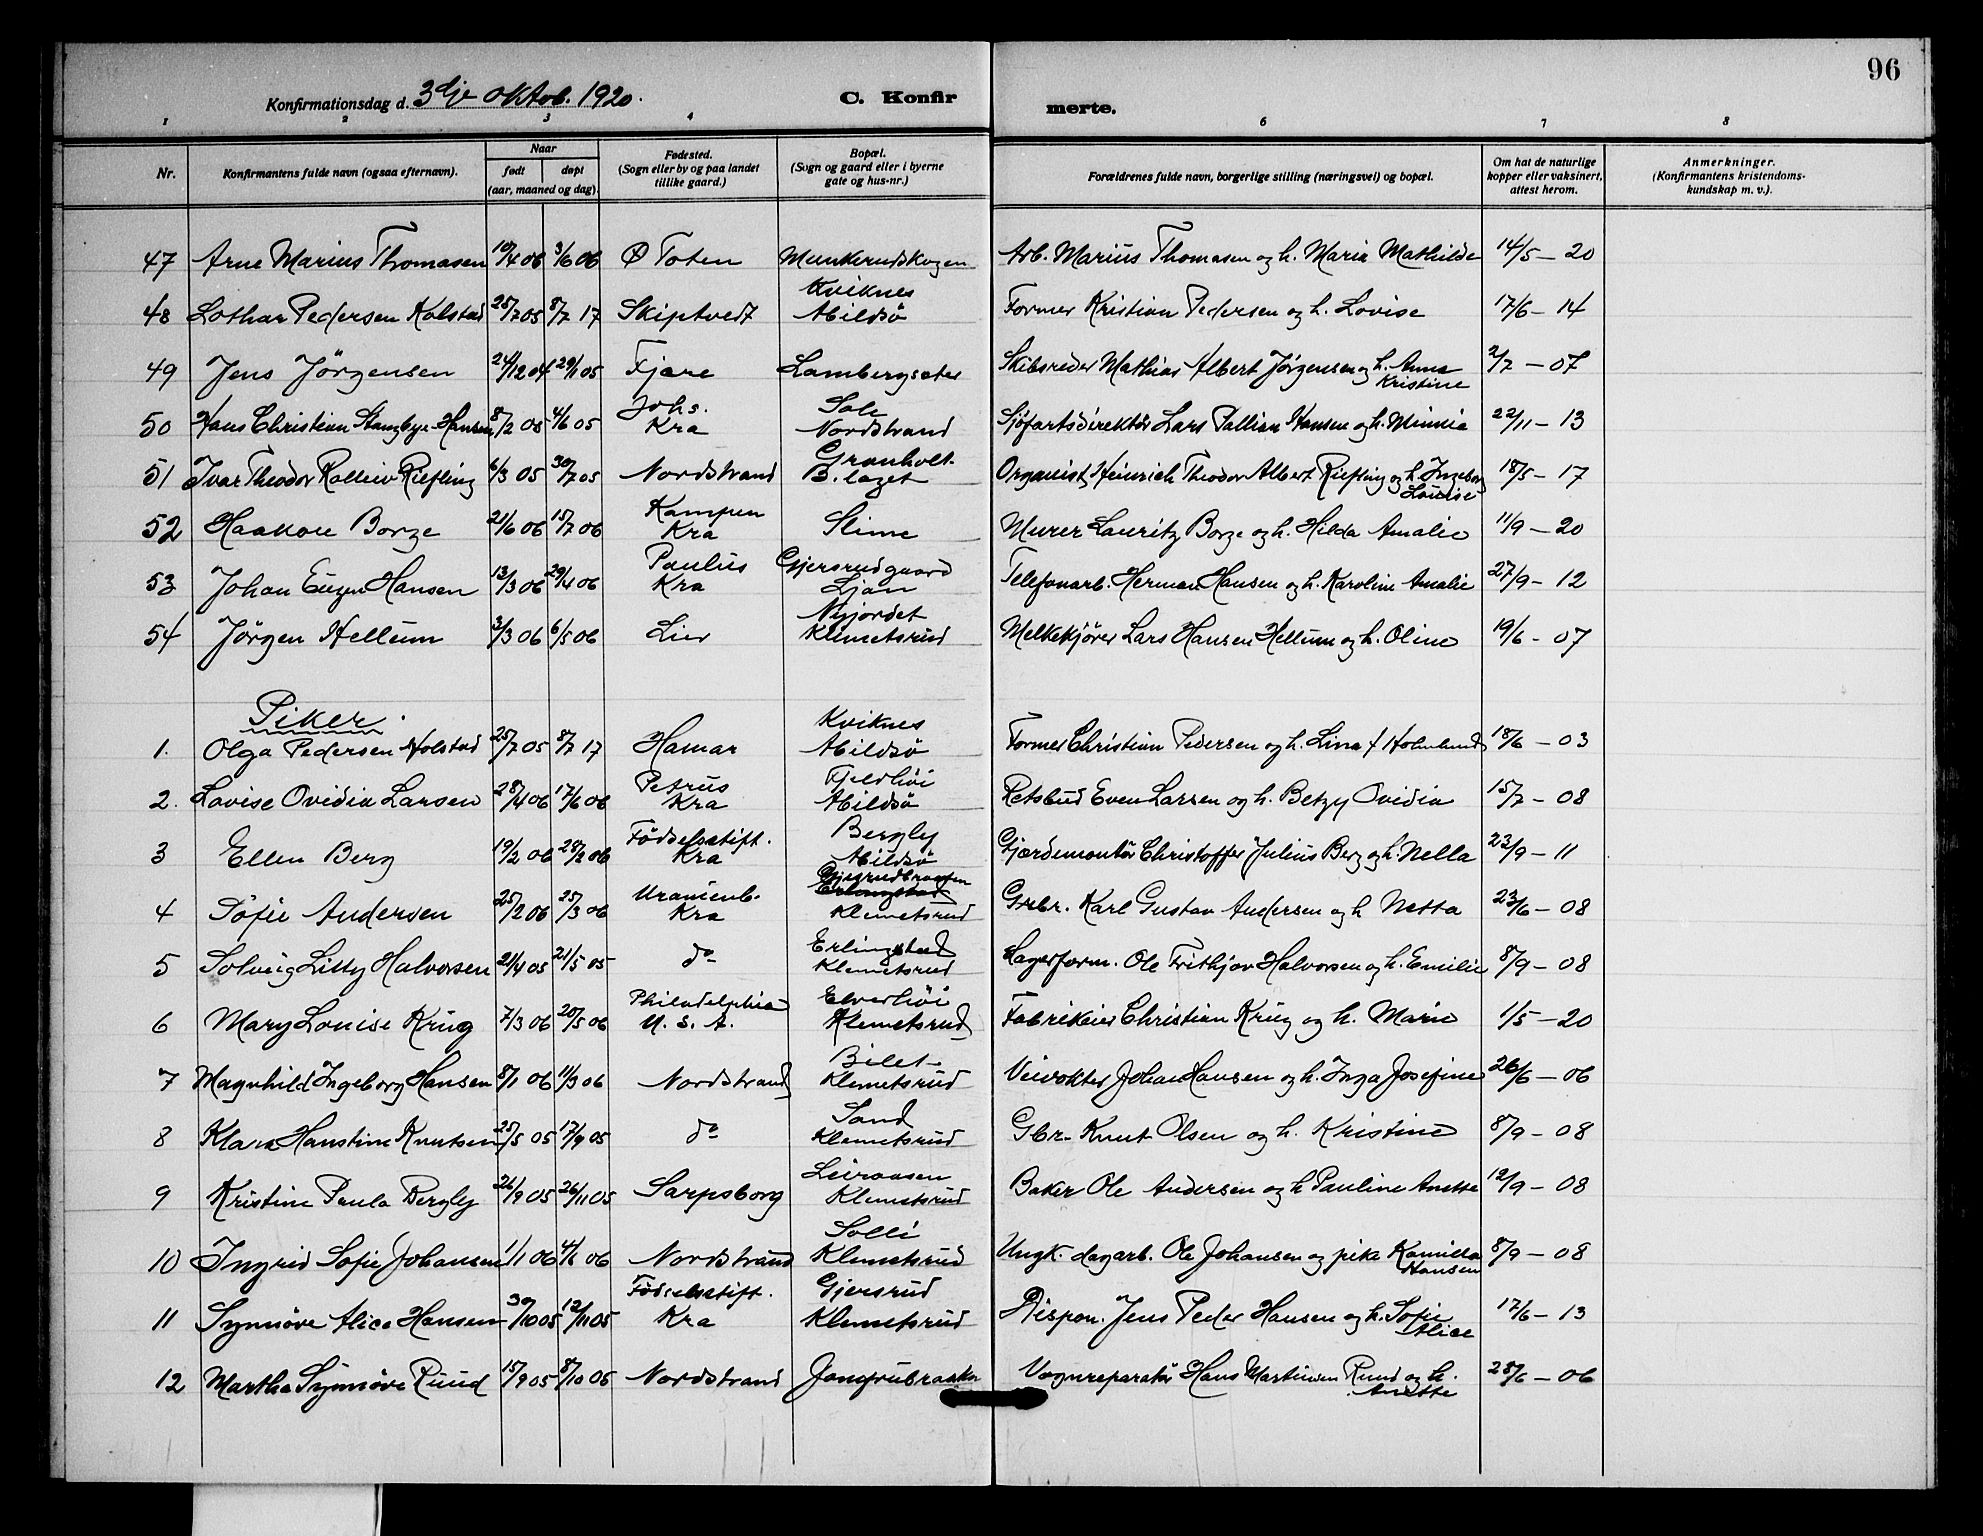 96
Konfirmationsdag d. 3dje oktob. 1920. C. Konfir merte.
1 2 3 4 6 7 8
Nr. Konfirmantens fulde navn (ogsaa efternavn). Naar født døpt (aar, maaned og dag). Fødested. (Sogn eller by og paa landet tillike gaard.) Bopæl. (Sogn og gaard eller i byerne gate og hus-nr.) Forældrenes fulde navn, borgerlige stilling (næringsvei) og bopæl. Om hat de naturlige kopper eller vaksinert, attest herom. Anmerkninger. (Konfirmantens kristendomskundskap m. v.).
47 Arne Marius Thomasen 10/4 06 3/6 06 Ø Toten Munkerudskogen Arb. Marius Thomasen og h. Maria Mathilde 14/5 – 20
Kviknes
48 Lothar Pedersen Kolstad 25/7 05 8/7 17 Skiptvedt Abildsö Former Kristian Pedersen og h. Lovise 17/6 – 14
49 Jens Jörgensen 24/12 04 29/1 05 Fjære Lambergseter Skibsreder Mathias Albert Jörgensen og h. Anna Kristine 2/7 – 07
Johs. Sole
50 Hans Christian Stangbye-Hansen 8/2 05 4/6 05 Kra Nordstrand Sjöfartsdirektör Lars Pallian Hansen og h. Minnia 22/11 – 13
Granholt.
51 Ivar Theodor Riefling 6/3 05 30/7 05 Nordstrand B. laget Organist Heinrich Theodor Albert Riefling og h. Ingeborg Louise 18/5 – 17
Kampen
52 Haakon Borge 21/6 06 15/7 06 Kra Slime Murer Lauritz Borge og h. Hilda Amalie 11/9 – 20
Paulus Gjersrudgaard
53 Johan Eugen Hansen 13/3 06 29/4 06 Kra Ljan Telefonarb. Herman Hansen og h. Karoline Amalie 27/9 – 12
Nyjordet
54 Jörgen Hellum 3/3 06 6/5 06 Lier Klemetsrud Melkekjörer Lars Hansen Hellum og h. Oline 19/6 – 07
Piker.
Kviknes
1. Olga Pedersen Holstad 25/7 05 8/7 17 Hamar Abildsö Former Christian Pedersen og h. Lina f Holmlund 18/6 – 03
Petrus Fjeldhöi
2. Lovise Ovidia Larsen 28/4 06 17/6 06 Kra Abildsö Retsbud Even Larsen og h. Betzy Ovidia 15/7 – 08
Födselsstift. Bergly
3 Ellen Berg 19/2 06 28/2 06 Kra Abildsö Gjærdemontör Christoffer Julius Berg og h. Nella 23/9 – 11
Uranienb. Gjersrudbraaten
4 Sofie Andersen 25/2 06 25/3 06 Kra Klemetsrud Grbr. Karl Gustav Andersen og h Netta 23/6 – 08
Erlingstad
5 Solveig Litty Halvorsen 21/4 05 21/5 05 do Klemetsrud Lagerform. Ole Frithjov Halvorsen og h. Emilie 8/9 – 08
Philadelphia Elverhöi
6 Mary Louise Krug 7/3 06 20/5 06 U. S. A. Klemetsrud Fabrikeier Christian Krug og h. Marie 1/5 – 20
Bilet-
7 Magnhild Ingeborg Hansen 8/1 06 11/3 06 Nordstrand Klemetsrud Veivokter Johan Hansen og h. Inga Josefine 26/6 – 06
Sand
8 Klara Haustine Knutsen 25/5 05 17/9 05 do Klemetsrud Gbr. Knut Olsen og h. Kristine 8/9 – 08
Leiraasen
9 Kristine Paula Bergly 26/9 05 26/11 05 Sarpsborg Klemetsrud Baker Ole Andersen og h Pauline Anette 12/9 – 08
Solli
10 Ingrid Sofie Johansen 1/1 06 4/6 06 Nordstrand Klemetsrud Ungk. dagarb. Ole Johansen og pike Kamilla Hansen 8/9 – 08
Födselsstift. Gjersrud
11 Synnöve Alice Hansen 30/10 05 12/11 05 Kra Klemetsrud Dispon. Jens Peder Hansen og h. Sofie Alice 17/6 – 13
12 Martha Synnöve Ruud 15/9 05 8/10 05 Nordstrand Vognreparatör Hans Martinsen Ruud og h. Anette 28/6 – 06